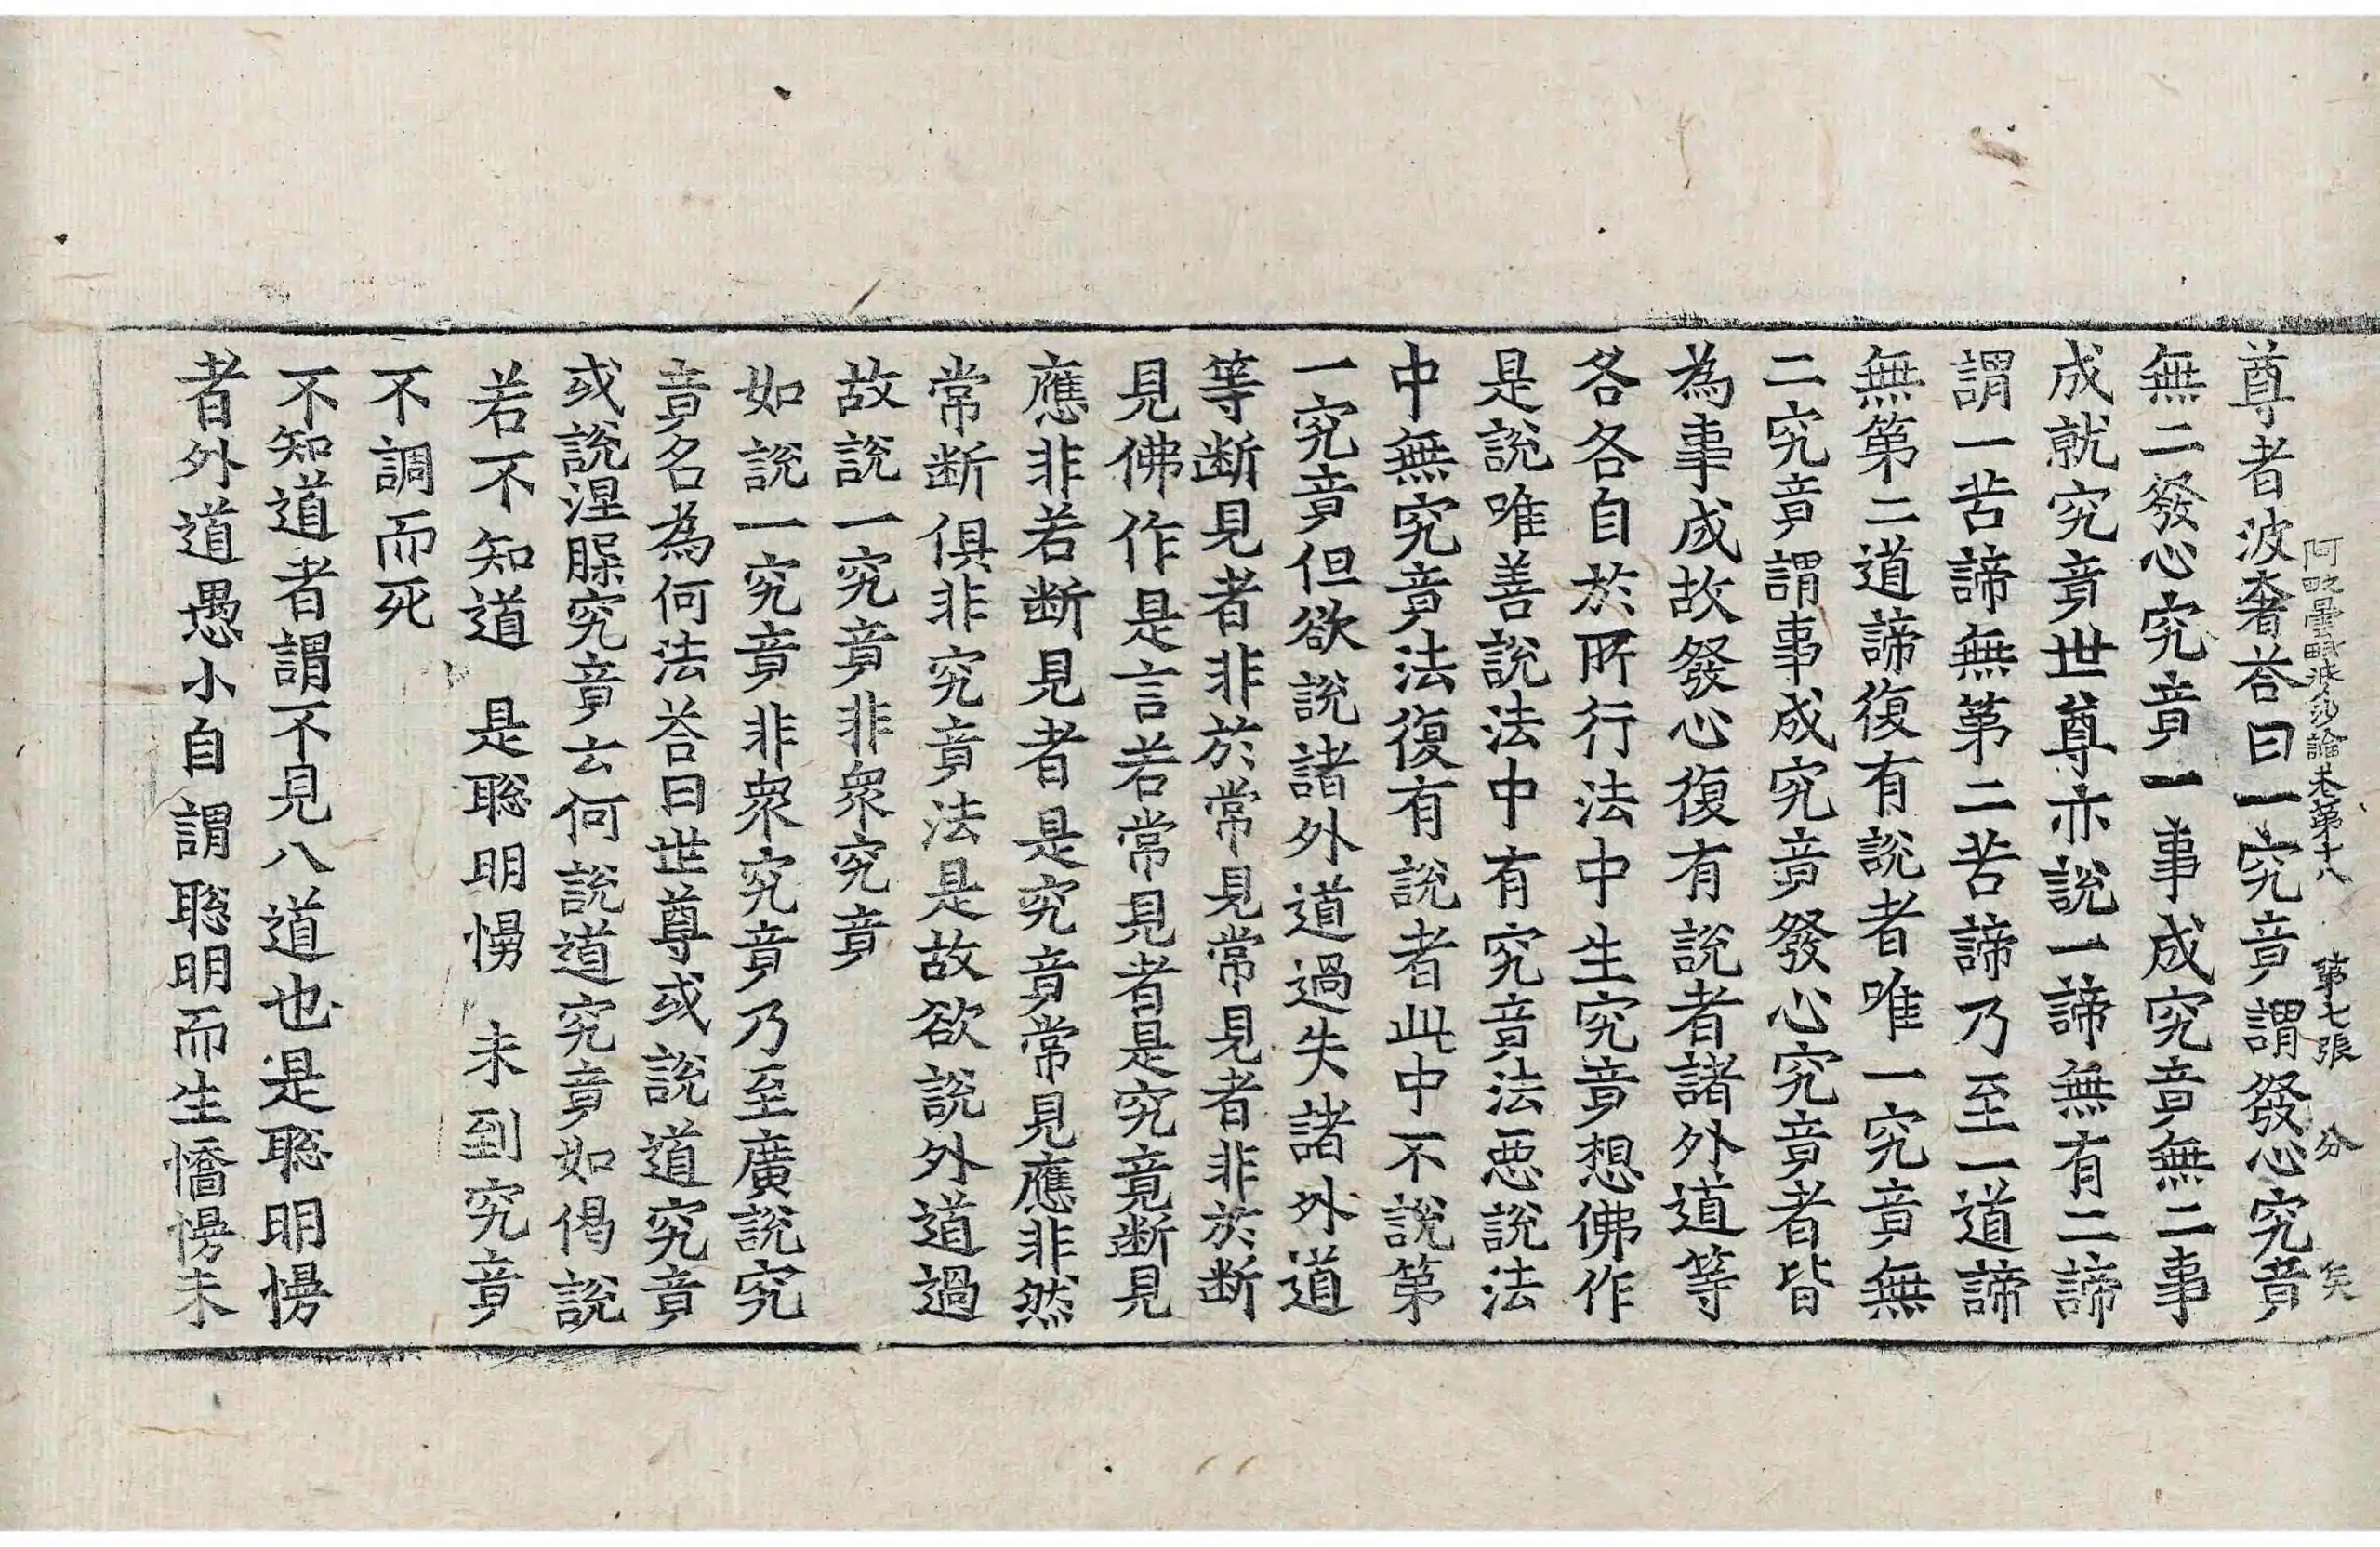 阿毗曇毗婆沙論卷第十八　第七張　分　矣
尊者波奢荅曰一究竟謂發心究竟
無二發心究竟一事成究竟無二事
成就究竟世尊亦說一諦無有二諦
謂一苦諦無第二苦諦乃至一道諦
無第二道諦復有說者唯一究竟無
二究竟謂事成究竟發心究竟者皆
為事成故發心復有說者諸外道等
各各自於所行法中生究竟想佛作
是說唯善說法中有究竟法惡說法
中無究竟法復有說者此中不說第
一究竟但欲說諸外道過失諸外道
等断見者非於常見常見者非於断
見佛作是言若常見者是究竟断見
應非若断見者是究竟常見應非然
常断俱非究竟法是故欲說外道過
故說一究竟非衆究竟
如說一究竟非衆究竟乃至廣說究
竟名為何法荅曰世尊或說道究竟
或說涅槃究竟云何說道究竟如偈說
若不知道　是聡明慢　未到究竟
不調而死
不知道者謂不見八道也是聡明慢
者外道愚小自謂聡明而生憍慢未